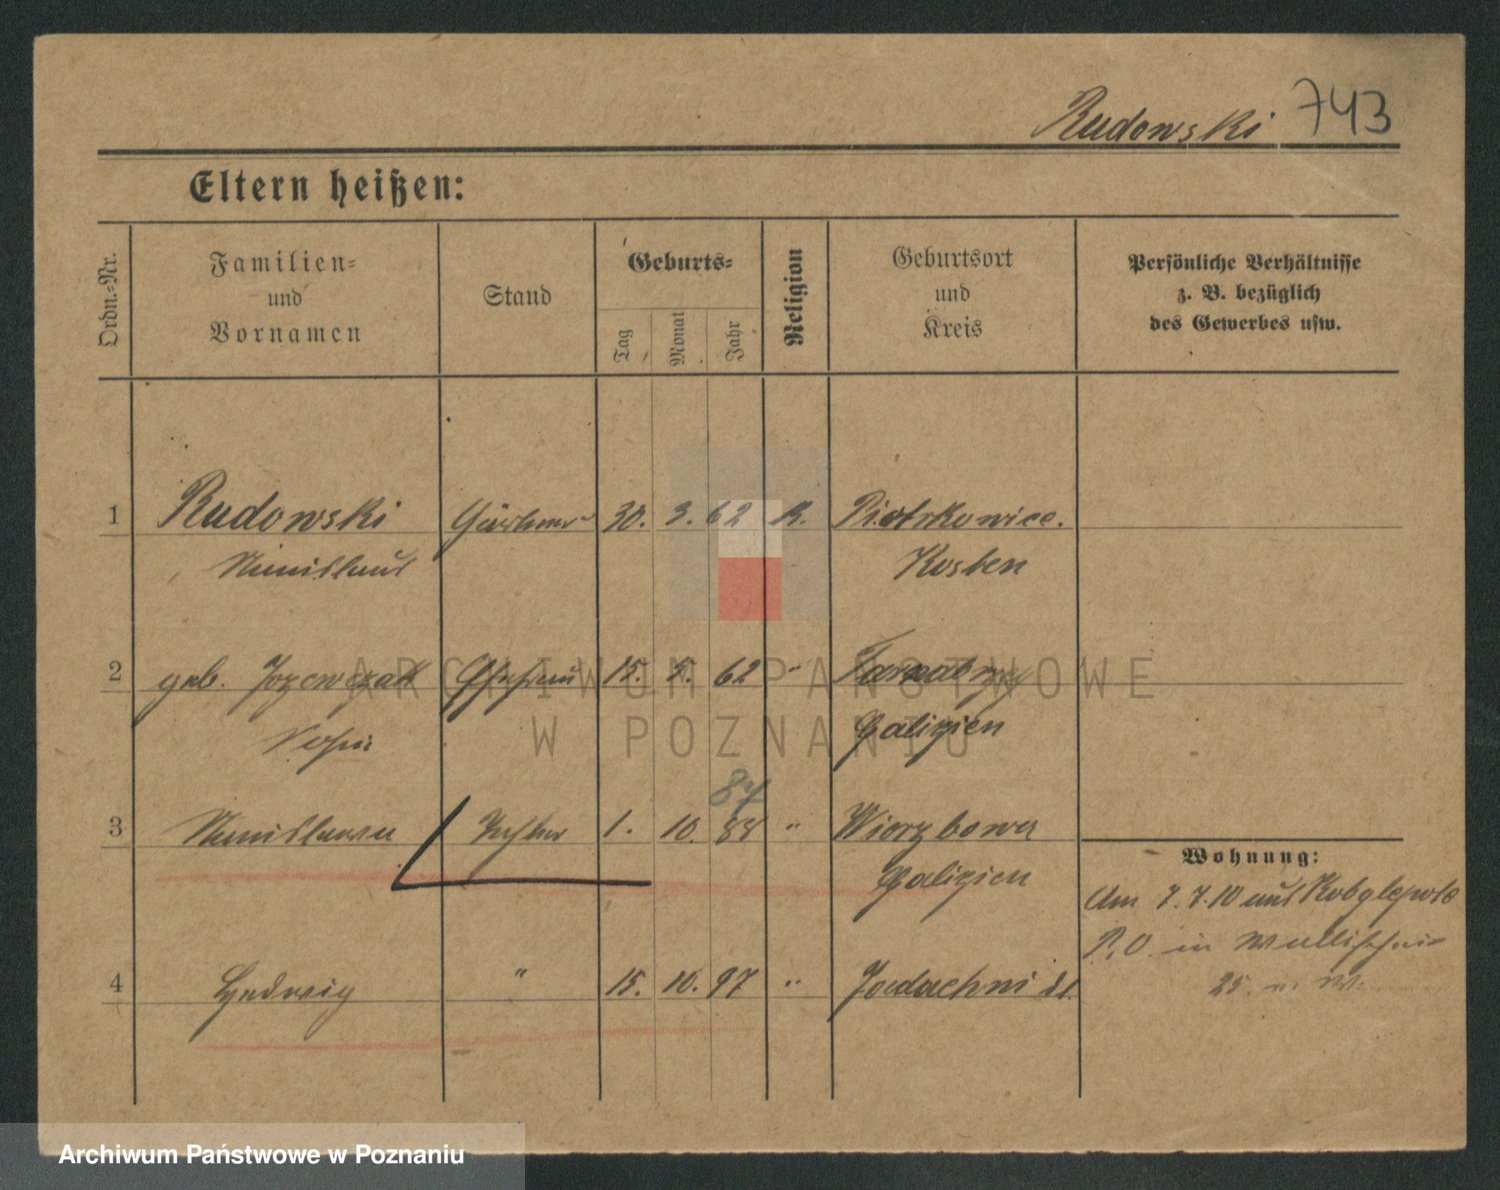 Rudowski 743
Eltern heißen:
Ordn.-Nr.
Familien-
und
Vornamen
Stand
Geburts-
Tag
Monat
Jahr
Religion
Geburtsort
und
Kreis
Persönliche Verhältnisse
z. B. bezüglich
des Gewerbes usw.
1 Rudowski Gärtner 30. 3. 62 R. Piotrkowice.
Stanislaus Kosten
2 geb. Jozewczak Ehefrau 15. 5. 62 "
Galizien
87
3 Stanislawa Tochter 1. 10. 88 " Wierzbowa
Galizien
Wohnung:
Am 7.7.10 aus Kobylepole
P. O. in
4 Hedwig " 15. 10. 97 "
25
ARCHIWUM PAŃSTWOWE
W POZNANIU
Archiwum Państwowe w Poznaniu